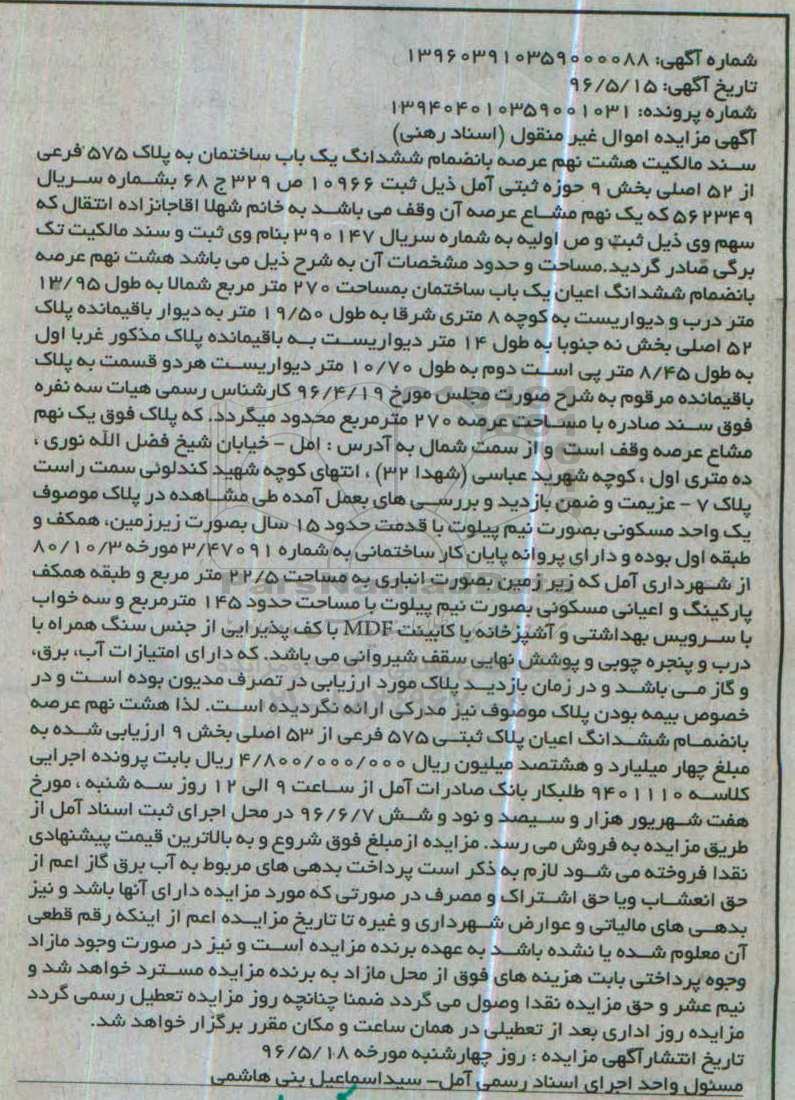 شماره آگهی: ۱۳۹۶۰۳۹۱۰۳۵۹۰۰۰۰۸۸
تاریخ آگهی: ۹۶/۵/۱۵
شماره پرونده: ۱۳۹۴۰۴۰۱۰۳۵۹۰۰۱۰۳۱
آگهی مزایده اموال غیر منقول (اسناد رهنی)
سند مالکیت هشت نهم عرصه بانضمام ششدانگ یک باب ساختمان به پلاک ۵۷۵ فرعی
از ۵۲ اصلی بخش ۹ حوزه ثبتی آمل ذیل ثبت ۱۰۹۶۶ ص ۳۲۹ ج ۶۸ بشماره سریال
۵۶۲۳۴۹ که یک نهم مشاع عرصه آن وقف می باشد به خانم شهلا اقاجانزاده انتقال که
سهم وی ذیل ثبت و ص اولیه به شماره سریال ۳۹۰۱۴۷ بنام وی ثبت و سند مالکیت تک
برگی صادر گردید.مساحت و حدود مشخصات آن به شرح ذیل می باشد هشت نهم عرصه
بانضمام ششدانگ اعیان یک باب ساختمان بمساحت ۲۷۰ متر مربع شمالا به طول ۱۳/۹۵
متر درب و دیواریست به کوچه ۸ متری شرقا به طول ۱۹/۵۰ متر به دیوار باقیمانده پلاک
۵۲ اصلی بخش نه جنوبا به طول ۱۴ متر دیواریست به باقیمانده پلاک مذکور غربا اول
به طول ۸/۴۵ متر پی است دوم به طول ۱۰/۷۰ متر دیواریست هردو قسمت به پلاک
باقیمانده مرقوم به شرح صورت مجلس مورخ ۹۶/۴/۱۹ کارشناس رسمی هیات سه نفره
فوق سند صادره با مساحت عرصه ۲۷۰ مترمربع محدود میگردد. که پلاک فوق یک نهم
مشاع عرصه وقف است و از سمت شمال به آدرس : امل - خیابان شیخ فضل الله نوری ،
ده متری اول ، کوچه شهرید عباسی (شهدا ۳۲) ، انتهای کوچه شهید کندلوئی سمت راست
پلاک ۷ - عزیمت و ضمن بازدید و بررسی های بعمل آمده طی مشاهده در پلاک موصوف
یک واحد مسکونی بصورت نیم پیلوت با قدمت حدود ۱۵ سال بصورت زیرزمین، همکف و
طبقه اول بوده و دارای پروانه پایان کار ساختمانی به شماره ۳/۴۷۰۹۱ مورخه ۸۰/۱۰/۳
از شهرداری آمل که زیر زمین بصورت انباری به مساحت ۲۲/۵ متر مربع و طبقه همکف
پارکینگ و اعیانی مسکونی بصورت نیم پیلوت با مساحت حدود ۱۴۵ مترمربع و سه خواب
با سرویس بهداشتی و آشپزخانه با کابینت MDF با کف پذیرایی از جنس سنگ همراه با
درب و پنجره چوبی و پوشش نهایی سقف شیروانی می باشد. که دارای امتیازات آب، برق،
و گاز می باشد و در زمان بازدید پلاک مورد ارزیابی در تصرف مدیون بوده است و در
خصوص بیمه بودن پلاک موصوف نیز مدرکی ارائه نگردیده است. لذا هشت نهم عرصه
بانضمام ششدانگ اعیان پلاک ثبتی ۵۷۵ فرعی از ۵۳ اصلی بخش ۹ ارزیابی شده به
مبلغ چهار میلیارد و هشتصد میلیون ریال ۴/۸۰۰/۰۰۰/۰۰۰ ریال بابت پرونده اجرایی
کلاسه ۹۴۰۱۱۱۰ طلبکار بانک صادرات آمل از ساعت ۹ الی ۱۲ روز سه شنبه ، مورخ
هفت شهریور هزار و سیصد و نود و شش ۹۶/۶/۷ در محل اجرای ثبت اسناد آمل از
طریق مزایده به فروش می رسد. مزایده ازمبلغ فوق شروع و به بالاترین قیمت پیشنهادی
نقدا فروخته می شود لازم به ذکر است پرداخت بدهی های مربوط به آب برق گاز اعم از
حق انعشاب ویا حق اشتراک و مصرف در صورتی که مورد مزایده دارای آنها باشد و نیز
بدهی های مالیاتی و عوارض شهرداری و غیره تا تاریخ مزایده اعم از اینکه رقم قطعی
آن معلوم شده یا نشده باشد به عهده برنده مزایده است و نیز در صورت وجود مازاد
وجوه پرداختی بابت هزینه های فوق از محل مازاد به برنده مزایده مسترد خواهد شد و
نیم عشر و حق مزایده نقدا وصول می گردد ضمنا چنانچه روز مزایده تعطیل رسمی گردد
مزایده روز اداری بعد از تعطیلی در همان ساعت و مکان مقرر برگزار خواهد شد.
تاریخ انتشارآگهی مزایده : روز چهارشنبه مورخه ۹۶/۵/۱۸
مسئول واحد اجرای اسناد رسمی آمل- سیداسماعیل بنی هاشمی